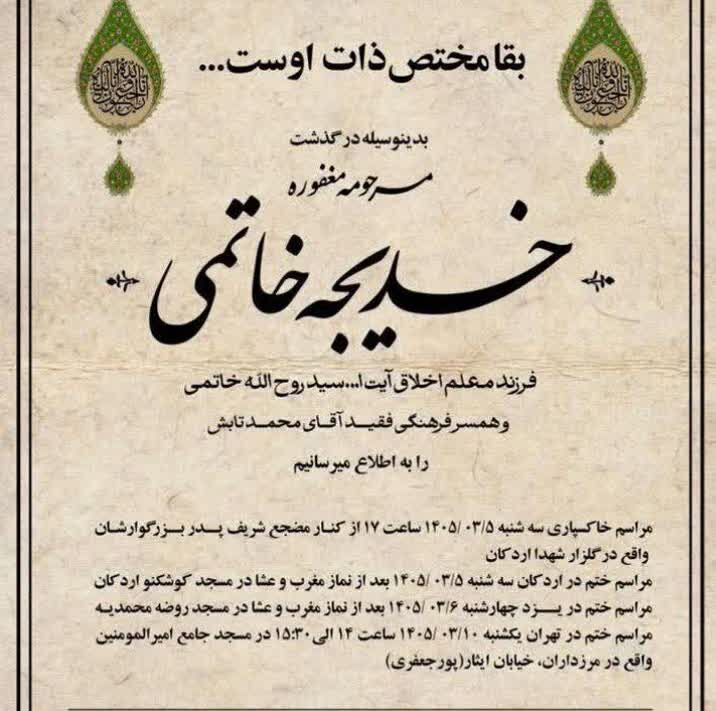 بقا مختص ذات اوست...
بدینوسیله درگذشت
مرحومه مغفوره
خدیجه خاتمی
فرزند معلم اخلاق آیت ا... سید روح الله خاتمی
و همسر فرهنگی فقید آقای محمد تابش
را به اطلاع میرسانیم
مراسم خاکسپاری سه شنبه ۱۴۰۵/۰۳/۵ ساعت ۱۷ از کنار مضجع شریف پدر بزرگوارشان
واقع در گلزار شهدا اردکان
مراسم ختم در اردکان سه شنبه ۱۴۰۵/۰۳/۵ بعد از نماز مغرب و عشا در مسجد کوشکنو اردکان
مراسم ختم در یزد چهارشنبه ۱۴۰۵/۰۳/۶ بعد از نماز مغرب و عشا در مسجد روضه محمدیه
مراسم ختم در تهران یکشنبه ۱۴۰۵/۰۳/۱۰ ساعت ۱۴ الی ۱۵:۳۰ در مسجد جامع امیرالمومنین
واقع در مرزداران، خیابان ایثار(پورجعفری)